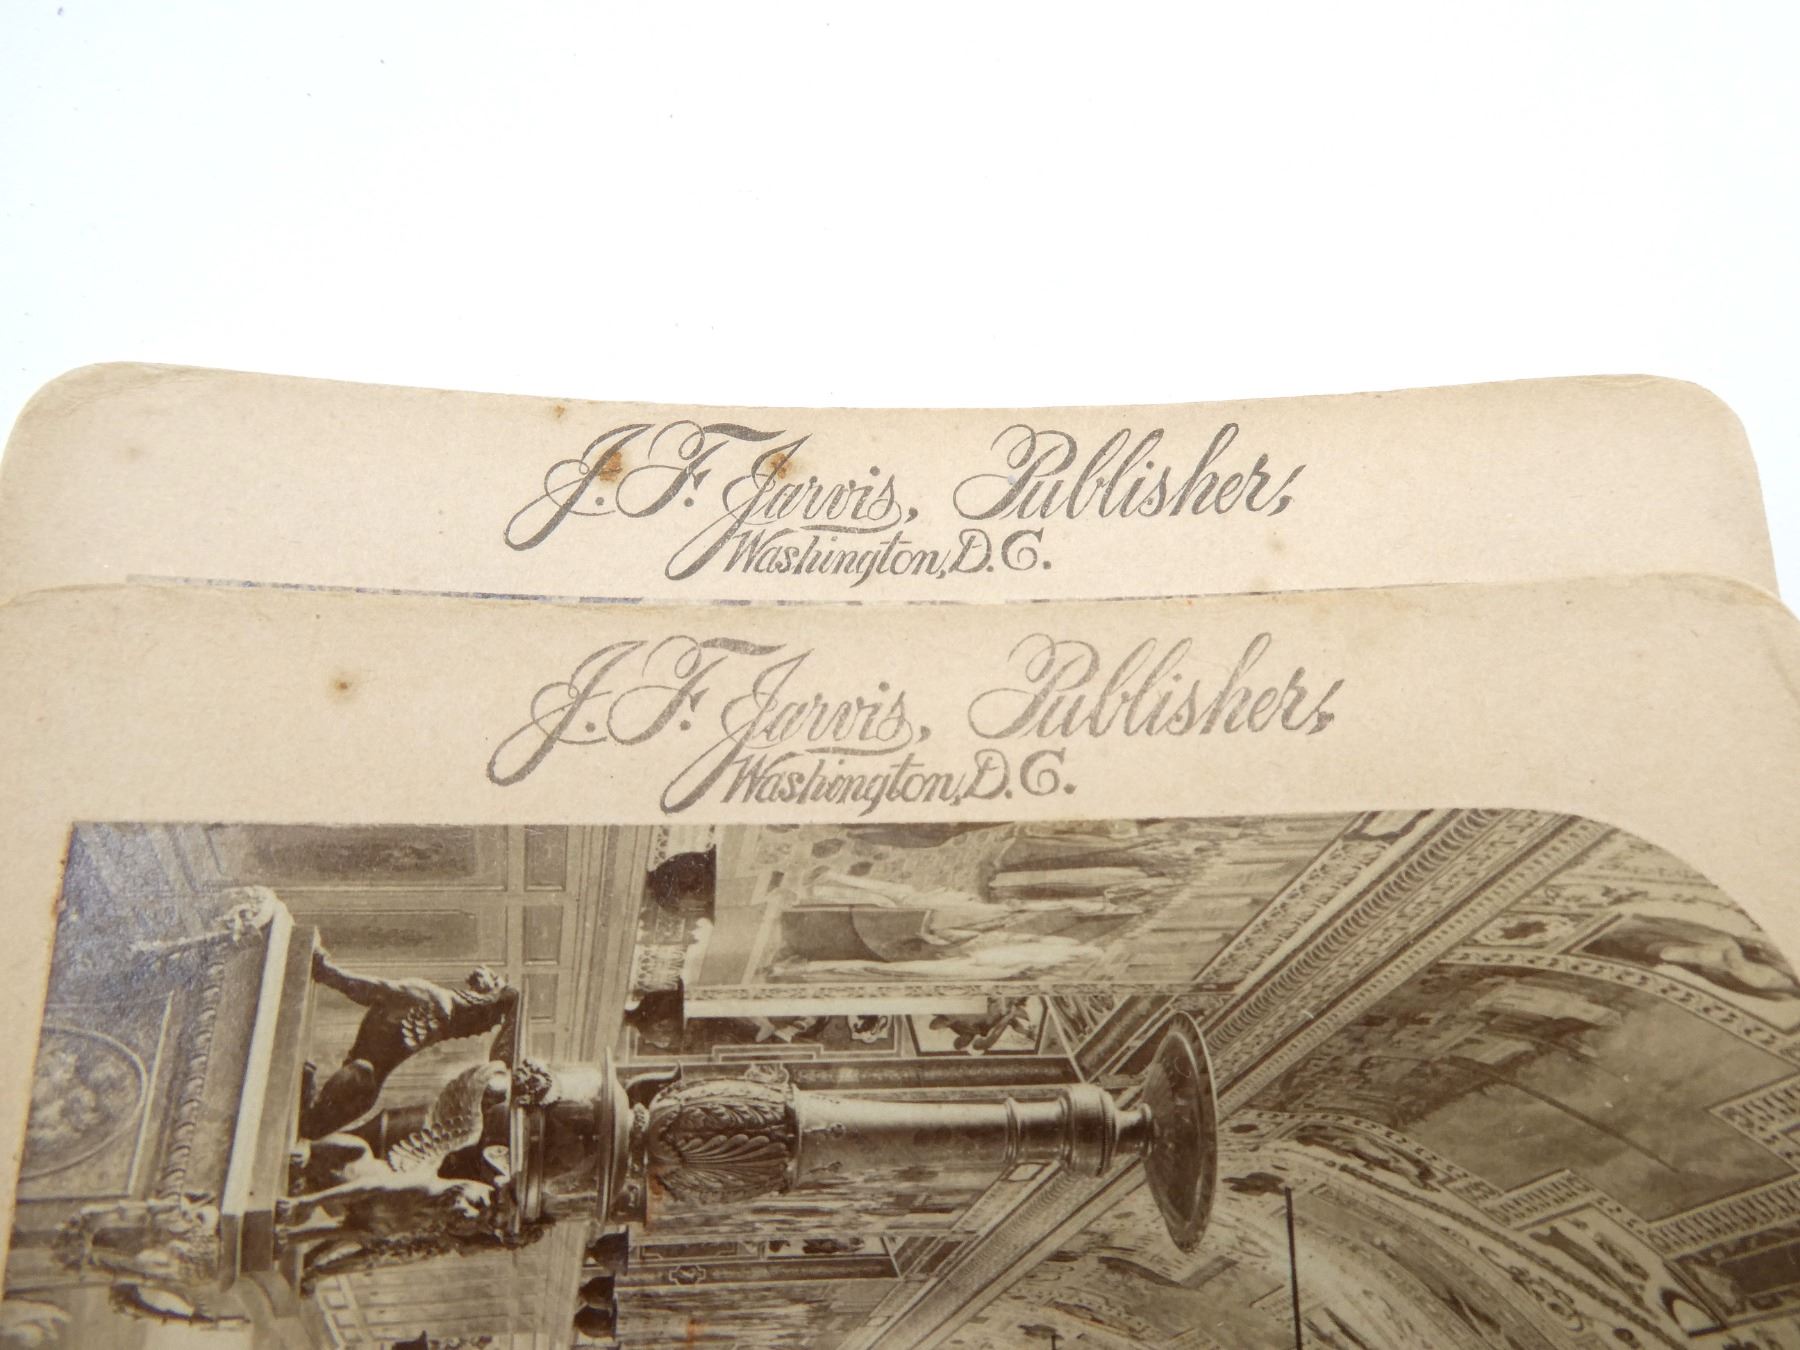 J. F. Jarvis, Publisher,
Washington, D.C.
J. F. Jarvis, Publisher,
Washington, D.C.